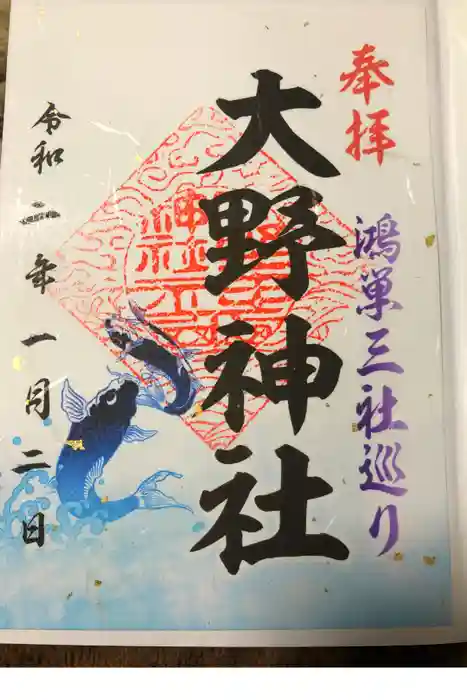 奉拝
鴻巣三社巡り
大野神社
令和二年一月二日